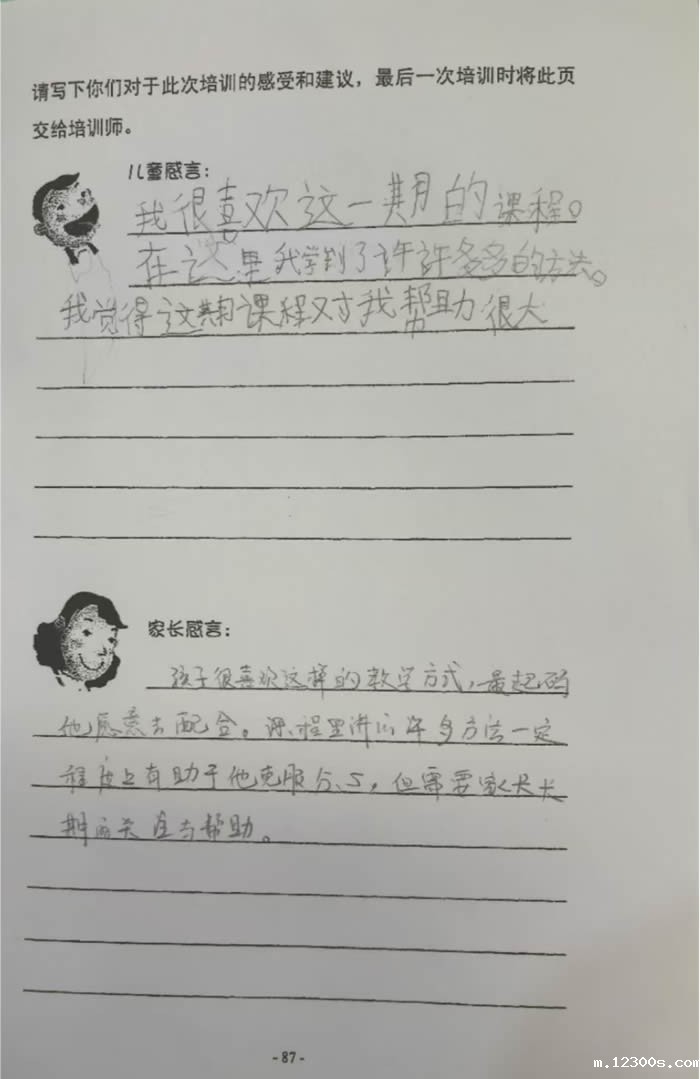 请写下你们对于此次培训的感受和建议，最后一次培训时将此页
交给培训师。
儿童感言：
我很喜欢这一期的课程。
在这里我学到了许许多多的方法。
我觉得这期课程对我帮助很大
家长感言：
孩子很喜欢这样的教学方式，最起码
他愿意去配合。课程里讲的许多方法一定
程度上有助于他克服分心，但需要家长长
期的关注与帮助。
- 87 -
m.12300s.com